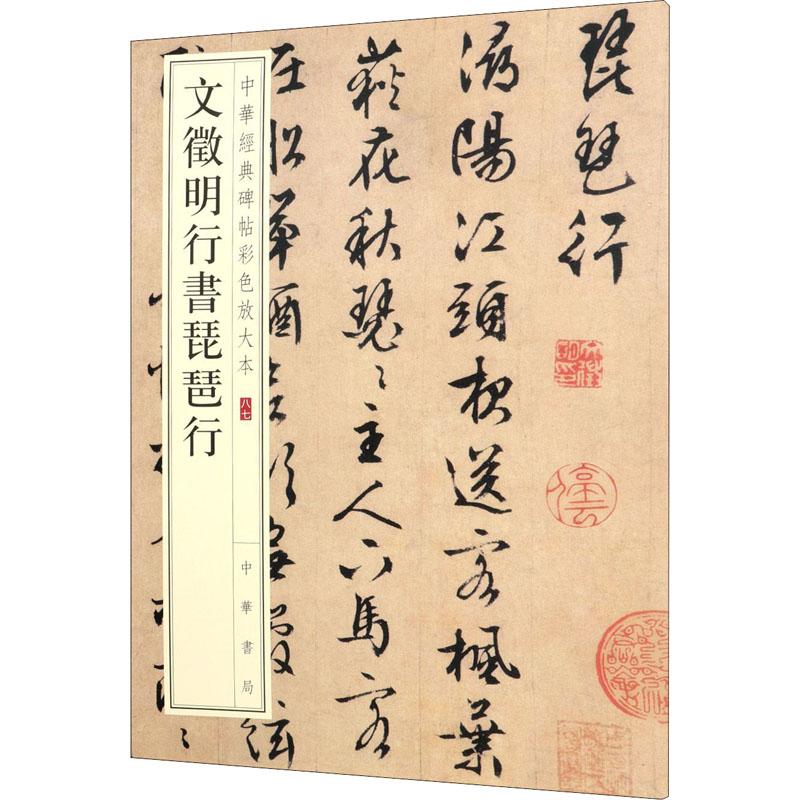 琵琶行
潯陽江頭夜送客楓葉
荻花秋瑟〻主人下馬客
在船舉酒欲飲無管絃
文徵明印
停云
中華經典碑帖彩色放大本
八七
中華書局
文徵明行書琵琶行